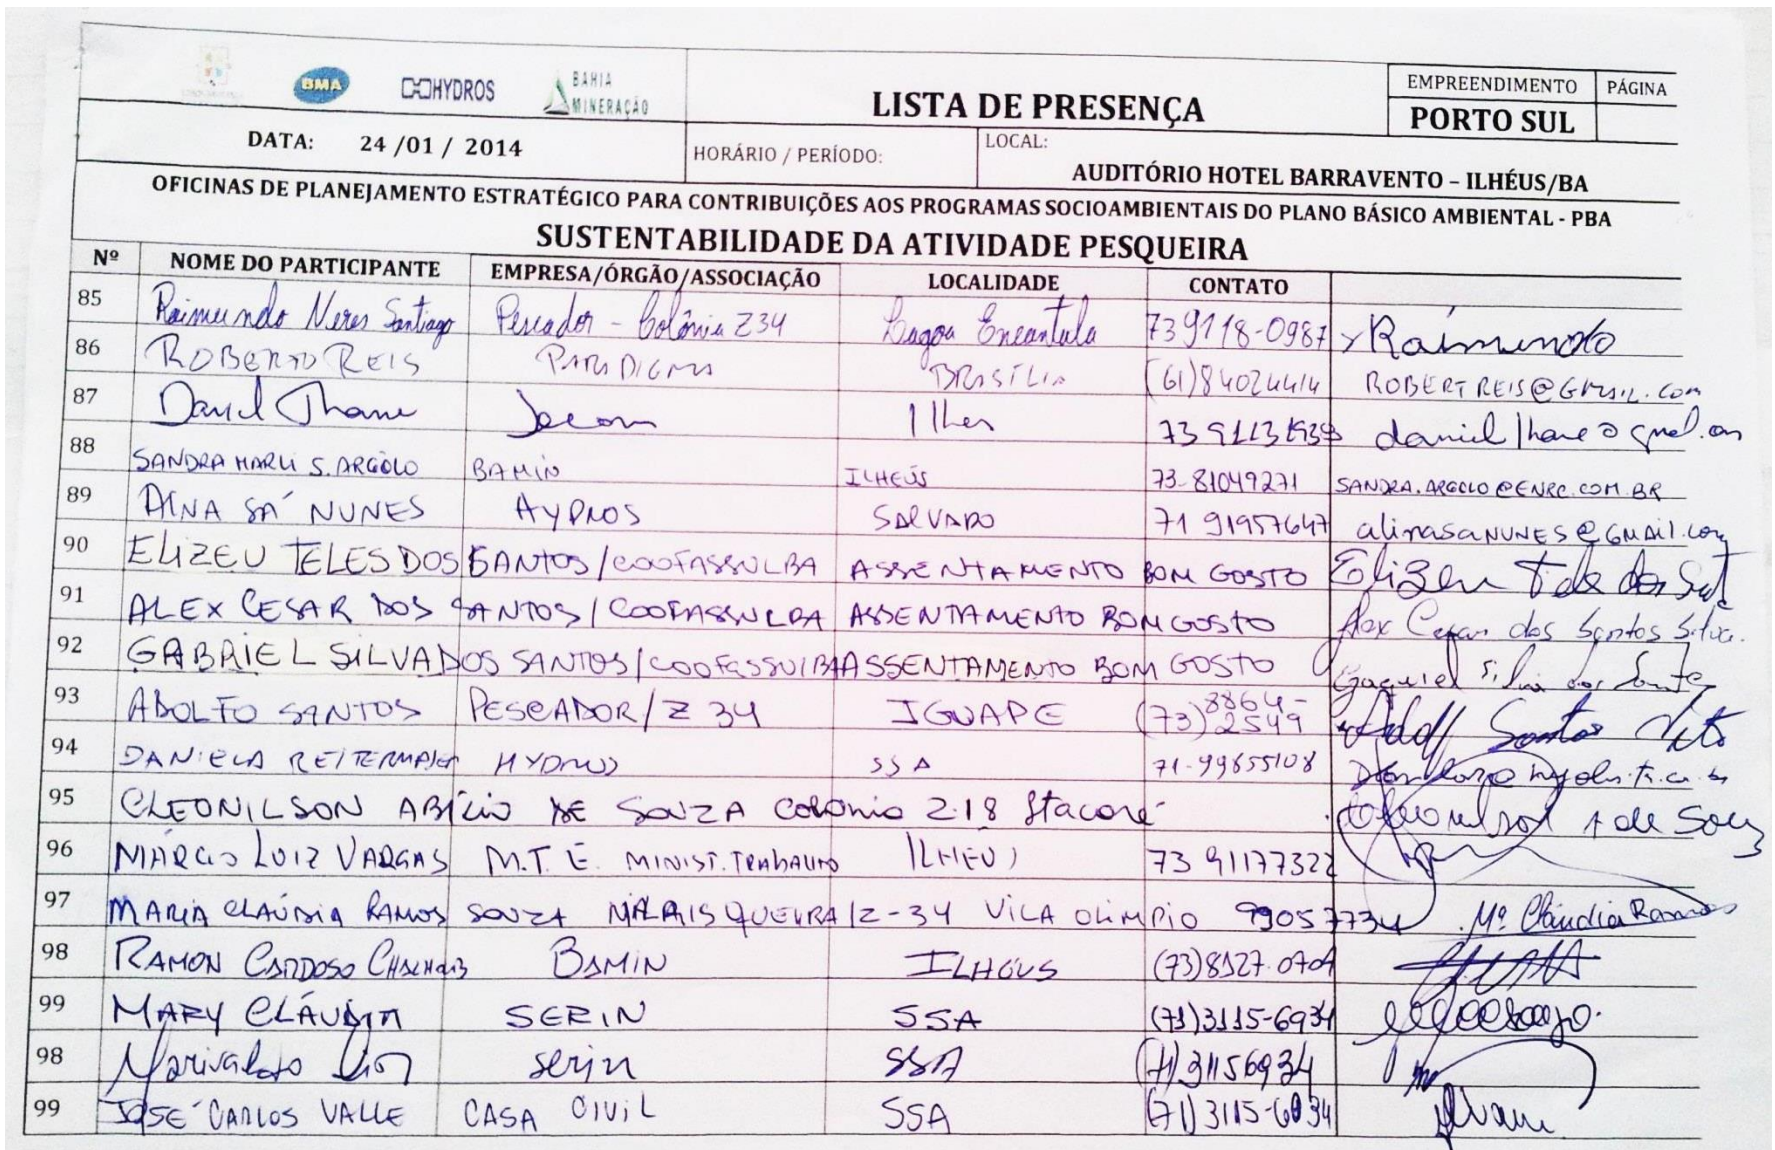 BMA HYDROS BAHIA MINERAÇÃO
LISTA DE PRESENÇA
EMPREENDIMENTO PÁGINA
PORTO SUL
DATA: 24 /01 / 2014 HORÁRIO / PERÍODO: LOCAL:
AUDITÓRIO HOTEL BARRAVENTO – ILHÉUS/BA
OFICINAS DE PLANEJAMENTO ESTRATÉGICO PARA CONTRIBUIÇÕES AOS PROGRAMAS SOCIOAMBIENTAIS DO PLANO BÁSICO AMBIENTAL - PBA
SUSTENTABILIDADE DA ATIVIDADE PESQUEIRA
Nº NOME DO PARTICIPANTE EMPRESA/ÓRGÃO/ASSOCIAÇÃO LOCALIDADE CONTATO
85 Raimundo Neres Santiago Pescador - Colônia Z34 Lagoa Encantada 73 9118-0987 Raimundo
86 ROBERTO REIS PARADIGMA BRASÍLIA (61)84024414 ROBERTREIS@GMAIL.COM
87 Daniel Thame Secom Ilheus
88 SANDRA MARLI S. ARGOLO BAMIN ILHEÚS 73-81049271 SANDRA.ARGOLO@ENRC.COM.BR
89 ALINA SÁ NUNES HYDROS SALVADO 71 91957647 alinasaNUNES@GMAIL.com
90 ELIZEU TELES DOS SANTOS / COOFASSULBA ASSENTAMENTO BOM GOSTO Elizeu
91 ALEX CESAR DOS SANTOS / COOFASSULBA ASSENTAMENTO BOM GOSTO Alex Cesar dos Santos Silva.
92 GABRIEL SILVA DOS SANTOS / COOFASSULBA ASSENTAMENTO BOM GOSTO
93 ADOLFO SANTOS PESCADOR / Z 34 IGUAPE (73) 8864-2549 Santos
94 DANIELA REITERMAJER HYDROS SSA 71-99655108
95 CLEONILSON ABÍLIO DE SOUZA Colonia Z-18 Itacaré
96 MÁRCIO LUIZ VARGAS M.T.E. MINIST. TRABALHO ILHEUS 73 91177322
97 MARIA CLAÚDIA RAMOS SOUZA MARISQUEIRA / Z-34 VILA OLIMPIO 99057734 Mª Cláudia Ramos
98 RAMON CARDOSO BAMIN ILHEUS (73)8127.0704
99 MARY CLÁUDIA SERIN SSA (71)3115-6934
98 Marivaldo serin SSA (71) 31156934
99 JOSÉ CARLOS VALLE CASA CIVIL SSA (71) 3115-6934